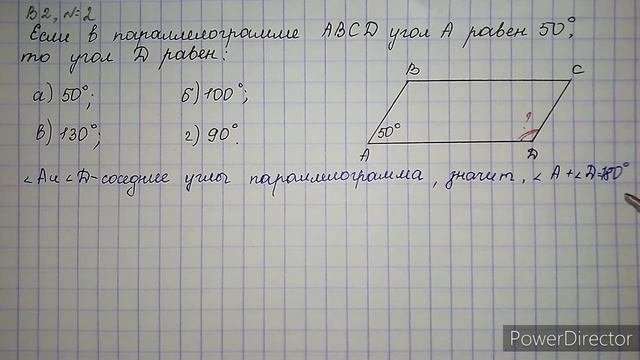 В2, №2
Если в параллелограмме ABCD угол A равен 50°,
то угол D равен:
а) 50°; б) 100°;
в) 130°; г) 90°.
B C
50° ?
A D
∠A и ∠D - соседние углы параллелограмма, значит, ∠A + ∠D = 180°
PowerDirector